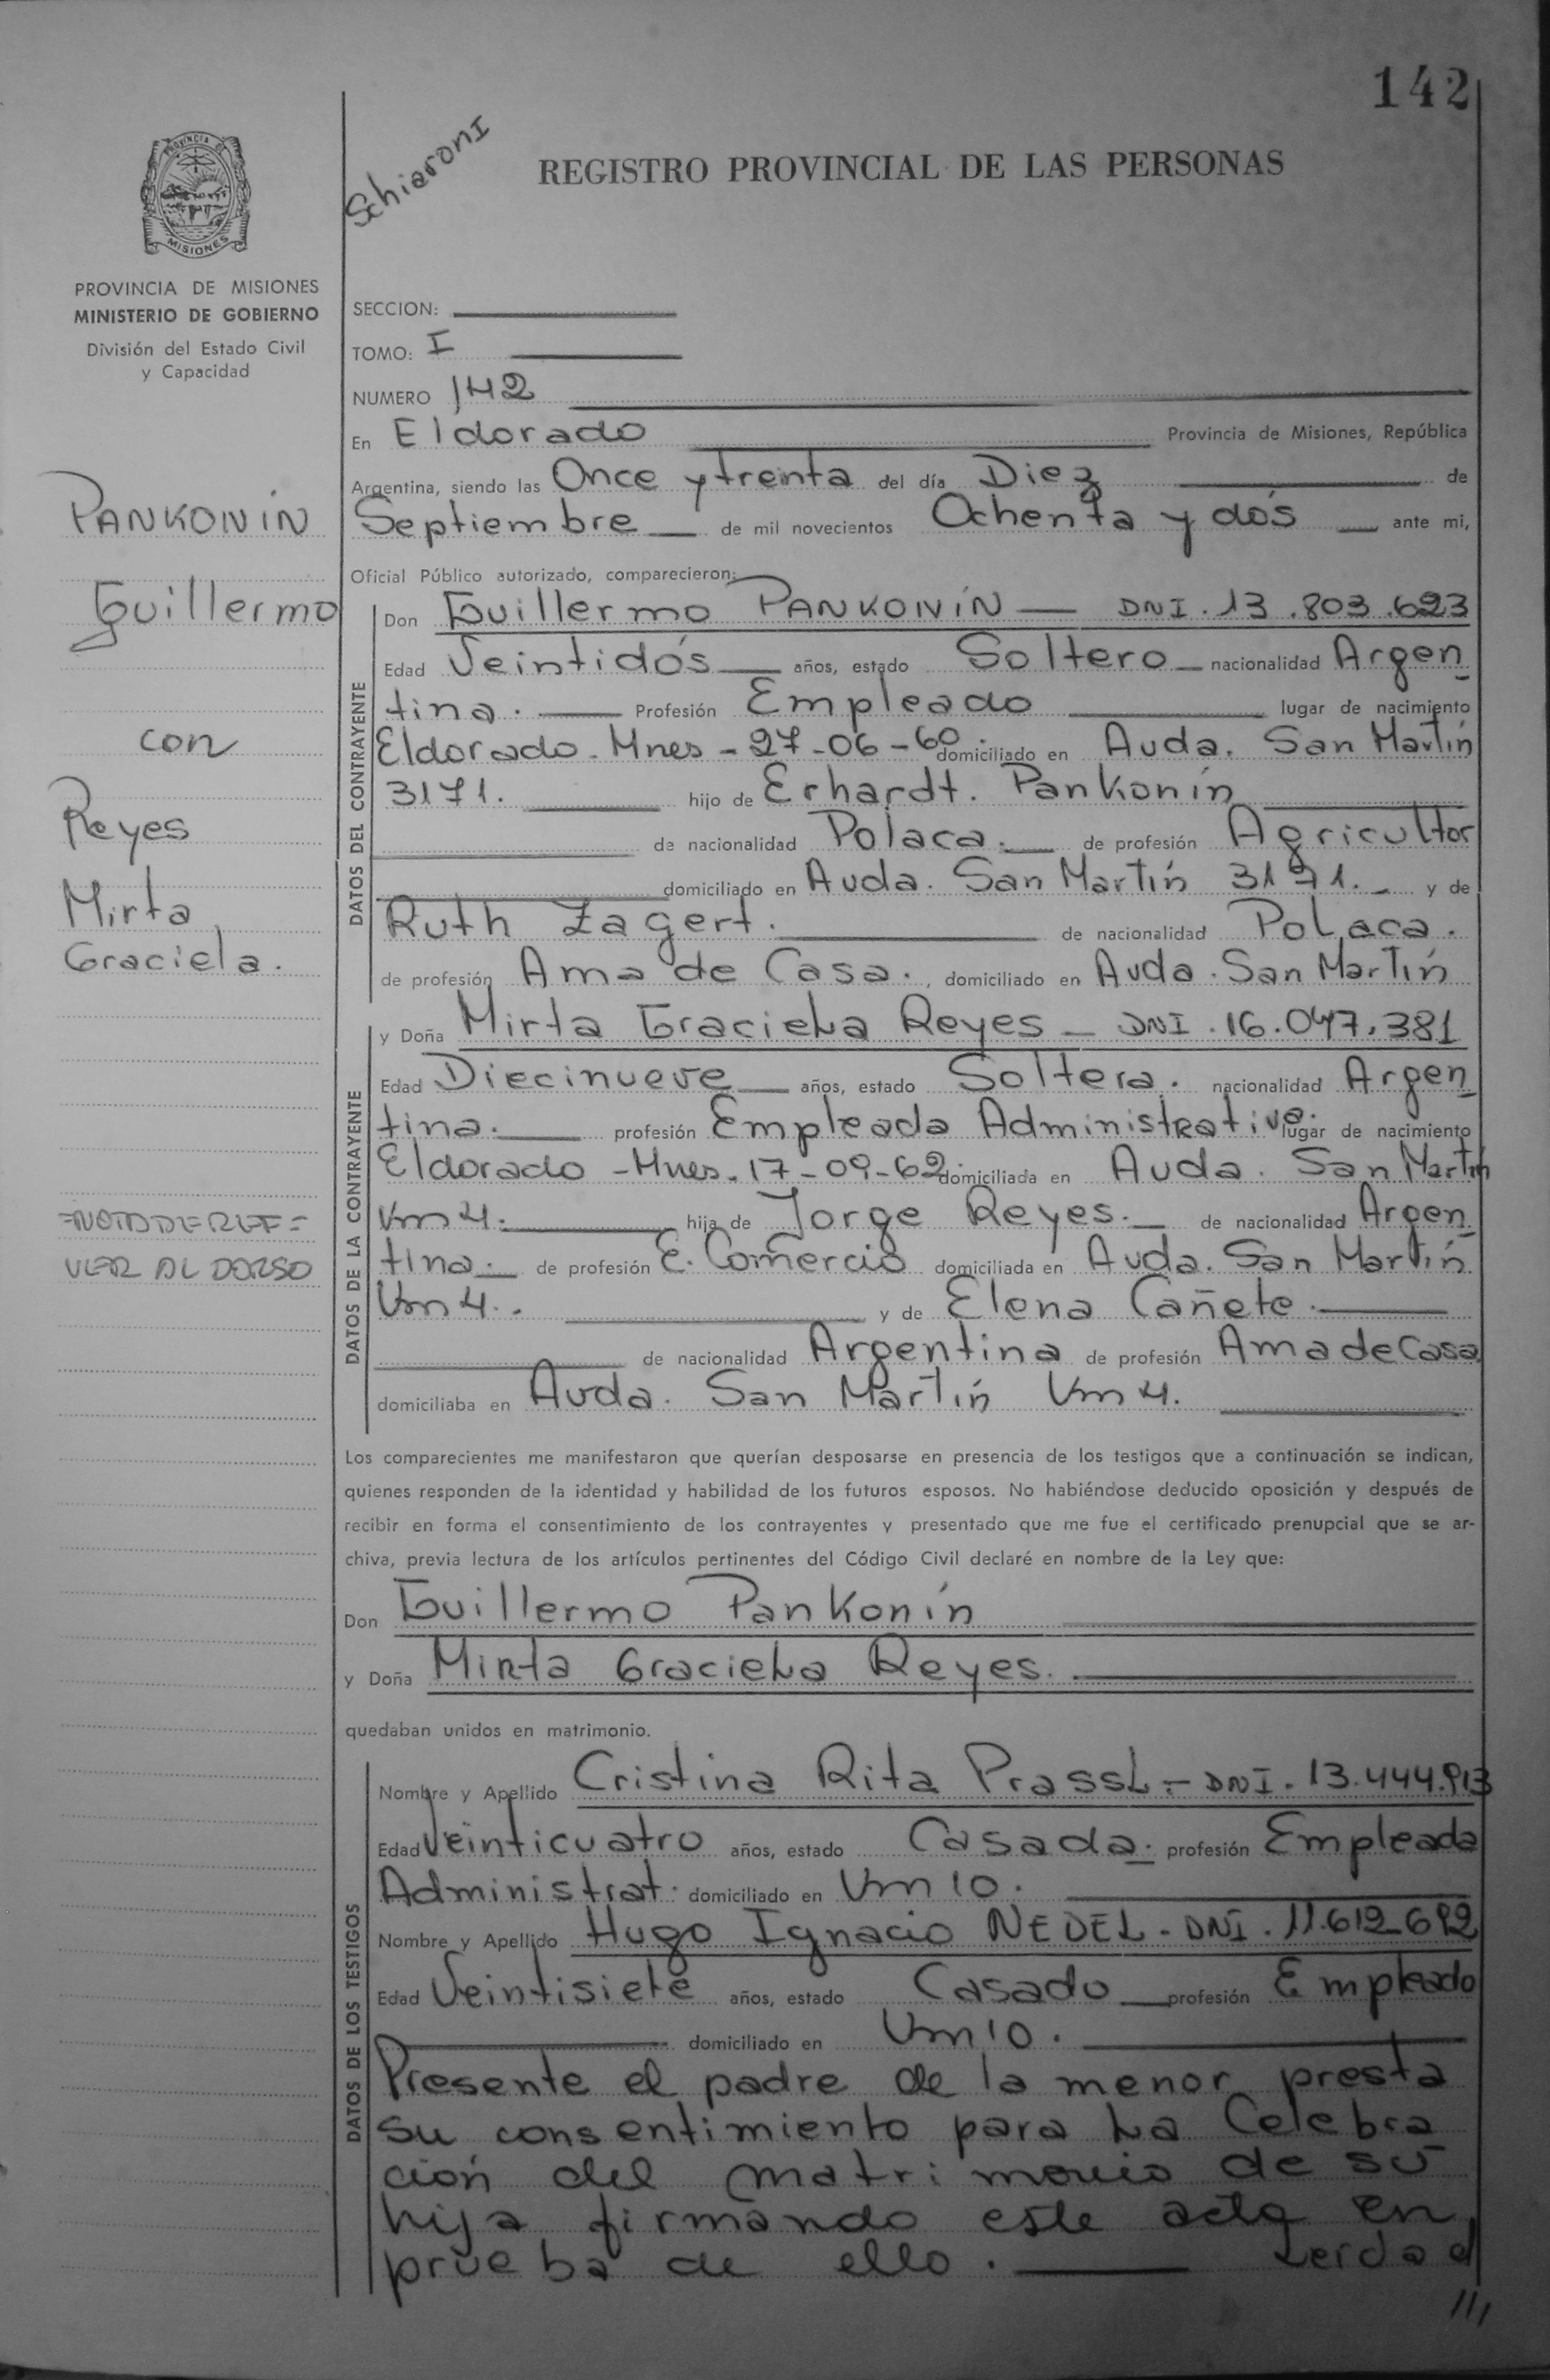 142
Schiaroni
REGISTRO PROVINCIAL DE LAS PERSONAS
PROVINCIA DE
MISIONES
PROVINCIA DE MISIONES
MINISTERIO DE GOBIERNO
División del Estado Civil
y Capacidad
SECCION:
TOMO: I
NUMERO 142
En Eldorado Provincia de Misiones, República
Argentina, siendo las Once y treinta del día Diez de
Septiembre de mil novecientos Ochenta y dós ante mi,
Oficial Público autorizado, comparecieron:
PANKONÍN
Guillermo
con
Reyes
Mirta
Graciela.
=NOTA DE REF=
VER AL DORSO
DATOS DEL CONTRAYENTE
Don Guillermo PANKONÍN — DNI. 13.803.623
Edad Veintidós años, estado Soltero nacionalidad Argen
tina. Profesión Empleado lugar de nacimiento
Eldorado - Mnes - 27-06-60. domiciliado en Avda. San Martín
3171. hijo de Erhardt. Pankonín
de nacionalidad Polaca. de profesión Agricultor
domiciliado en Avda. San Martín 3171. y de
Ruth Zagert. de nacionalidad Polaca.
de profesión Ama de Casa., domiciliado en Avda. San Martín
DATOS DE LA CONTRAYENTE
y Doña Mirta Graciela Reyes — DNI. 16.047.381
Edad Diecinueve años, estado Soltera. nacionalidad Argen
tina. profesión Empleada Administrativa. lugar de nacimiento
Eldorado - Mnes. 17-09-62. domiciliada en Avda. San Martín
Km 4. hija de Jorge Reyes. de nacionalidad Argen
tina. de profesión E. Comercio domiciliada en Avda. San Martín
Km 4. y de Elena Cañete.
de nacionalidad Argentina de profesión Ama de Casa
domiciliaba en Avda. San Martín Km 4.
Los comparecientes me manifestaron que querían desposarse en presencia de los testigos que a continuación se indican,
quienes responden de la identidad y habilidad de los futuros esposos. No habiéndose deducido oposición y después de
recibir en forma el consentimiento de los contrayentes y presentado que me fue el certificado prenupcial que se ar-
chiva, previa lectura de los artículos pertinentes del Código Civil declaré en nombre de la Ley que:
Don Guillermo Pankonín
y Doña Mirta Graciela Reyes.
quedaban unidos en matrimonio.
DATOS DE LOS TESTIGOS
Nombre y Apellido Cristina Rita Prassl. — DNI. 13.444.913
Edad Veinticuatro años, estado Casada. profesión Empleada
Administrat. domiciliado en Km 10.
Nombre y Apellido Hugo Ignacio NEDEL - DNI. 11.612.692
Edad Veintisiete años, estado Casado profesión Empleado
domiciliado en Km 10.
Presente el padre de la menor presta
su consentimiento para la Celebra
ción del matrimonio de su
hija firmando este acta en
prueba de ello. Lerda el
///